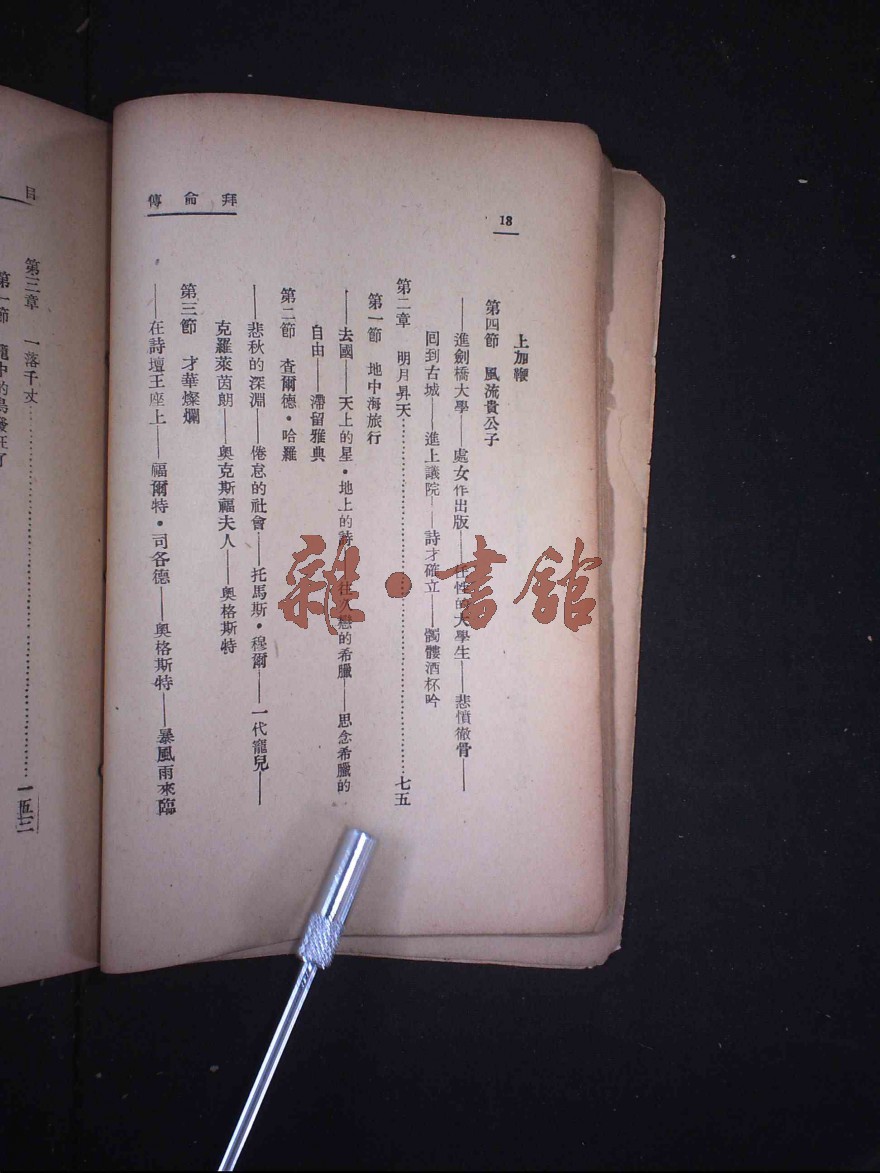 拜侖傳
18
上加鞭
第四節 風流貴公子
——進劍橋大學——處女作出版——任性的大學生——悲憤徹骨——
回到古城——進上議院——詩才確立——髑髏酒杯吟
第二章 明月昇天……………………七五
第一節 地中海旅行
——去國——天上的星・地上的詩——往久戀的希臘——思念希臘的
自由——滯留雅典
第二節 查爾德・哈羅
——悲秋的深淵——倦怠的社會——托馬斯・穆爾——一代寵兒——
克羅萊茵朗——奧克斯福夫人——奧格斯特
第三節 才華燦爛
——在詩壇王座上——福爾特・司各德——奧格斯特——暴風雨來臨
目
第三章 一落千丈……………………一五三
第一節
雜・書館